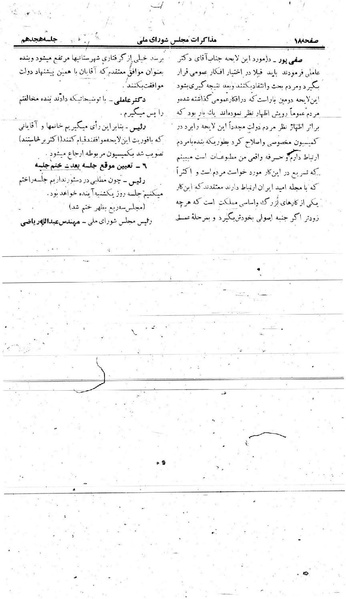 صفحه ۱۸۸
مذاکرات مجلس شورای ملی
جلسه هجدهم
صفی پور ـ (در مورد این لایحه جناب آقای دکتر
عاملی فرمودند باید قبلا در اختیار افکار عمومی قرار
بگیرد و مردم بحث و انتقاد بکنند و بعد نتیجه گیری بشود
این لایحه دومین بار است که در افکار عمومی گذاشته شده و
مردم عموماً رویش اظهار نظر نموده‌اند یك بار بود که
بر اثر اظهار نظر مردم دولت مجدداً این لایحه را برد در
کمیسیون مخصوصی و اصلاح کرد بطوریکه بنده با مردم
ارتباط دارم و حرفه واقعی من مطبوعات است میبینم
که تسریع در این کار مورد خواست مردم است و اکثراً
که با مجله امید ایران ارتباط دارند معتقدند که این کار
یکی از کارهای بزرگ و اساسی مملکت است که هر چه
زودتر اگر جنبه اصولی بخودش بگیرد و بمرحلهٔ عمل
برسد خیلی از گرفتاری شهرستانیها مرتفع میشود و بنده
بعنوان موافق معتقدم که آقایان با همین پیشنهاد دولت
موافقت بکنند.
دکتر عاملی ـ با توضیحاتیکه دادند بنده مخالفتم
را پس میگیرم.
رئیس ـ بنابر این رأی میگیریم خانمها و آقایانی
که با فوریت این لایحه موافقند قیام کنند (اکثر برخاستند)
تصویب شد بکمیسیون مربوطه ارجاع میشود.
۶ ـ تعیین موقع جلسه بعد ـ ختم جلسه
رئیس ـ چون مطلبی در دستور نداریم جلسه را ختم
میکنیم جلسه روز یکشنبه آینده خواهد بود.
(مجلس سه ربع بظهر ختم شد)
رئیس مجلس شورای ملی ـ مهندس عبدالله ریاضی